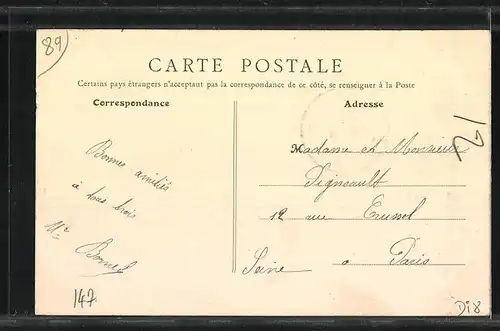 89
CARTE POSTALE
Certains pays étrangers n'acceptant pas la correspondance de ce côté, se renseigner à la Poste
Correspondance
Adresse
Bonnes amitiés
à tous trois
Madame et Monsieur
12 rue Crussol
à Paris
Seine
12
147
Di8